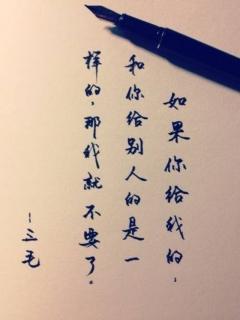 如果你给我的，
和你给别人的是一
样的，那我就不要了。
--三毛